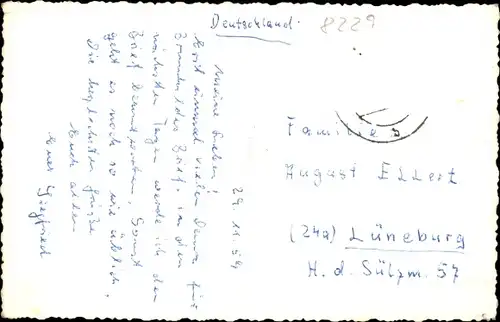 Deutschland.
8229
29.11.54
Meine Lieben!
Erst einmal vielen Dank für
Brief. In den
nächsten Tagen werde ich den
Brief Sonst
geht es noch so wie üblich.
Die herzlichsten Grüße
Euch allen
Euer Siegfried
Familie
August Ellert
(24a) Lüneburg
H. d. Sülzm. 57